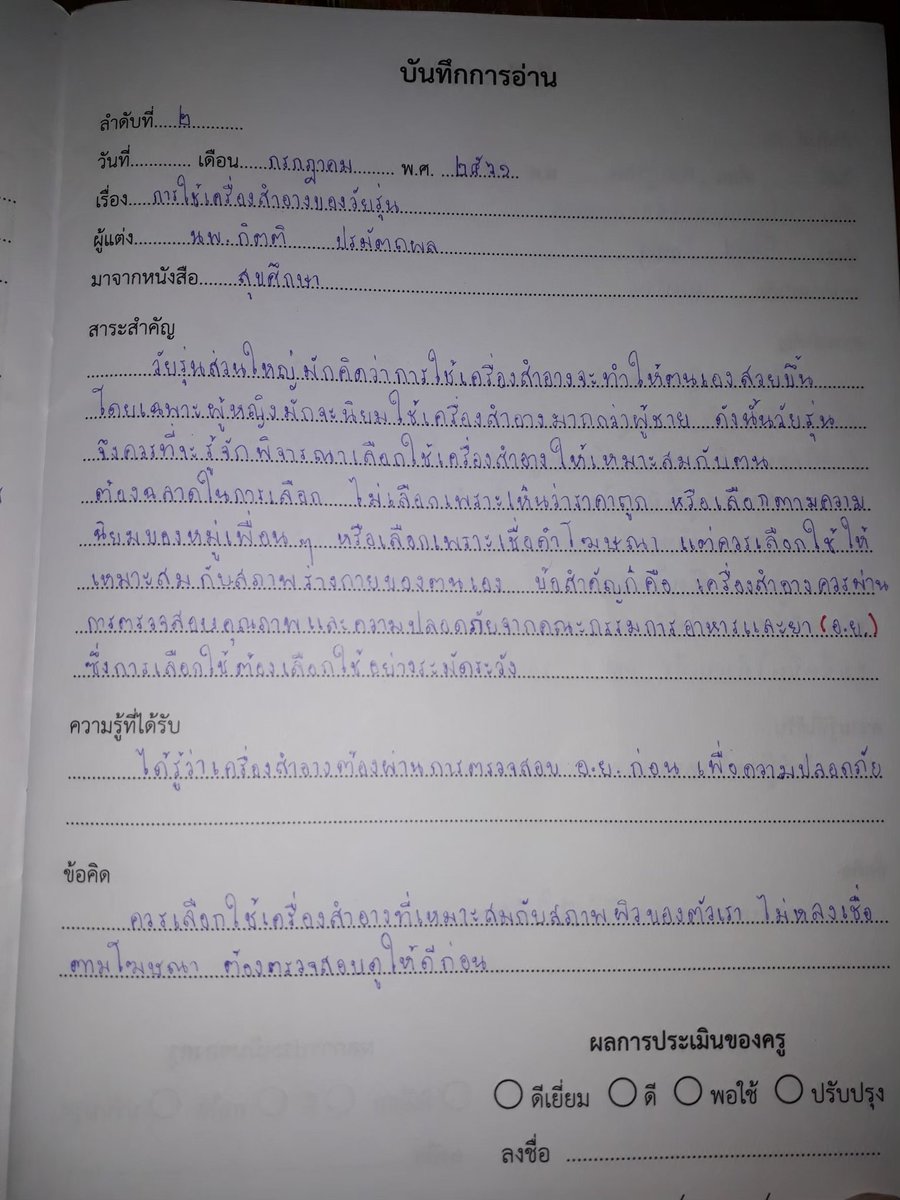 บันทึกการอ่าน
ลำดับที่.....๒...............
วันที่............. เดือน.....กรกฎาคม........ พ.ศ. ..๒๕๖๑..
เรื่อง....การใช้เครื่องสำอางของวัยรุ่น
ผู้แต่ง..........นพ. กิตติ ปรมัตถผล
มาจากหนังสือ.......สุขศึกษา
สาระสำคัญ
วัยรุ่นส่วนใหญ่มักคิดว่าการใช้เครื่องสำอางจะทำให้ตนเองสวยขึ้น
โดยเฉพาะผู้หญิงมักจะนิยมใช้เครื่องสำอางมากกว่าผู้ชาย ดังนั้นวัยรุ่น
จึงควรที่จะรู้จักพิจารณาเลือกใช้เครื่องสำอางให้เหมาะสมกับตน
ต้องฉลาดในการเลือก ไม่เลือกเพราะเห็นว่าราคาถูก หรือเลือกตามความ
นิยมของหมู่เพื่อนๆ หรือเลือกเพราะเชื่อคำโฆษณา แต่ควรเลือกใช้ให้
เหมาะสมกับสภาพร่างกายของตนเอง ข้อสำคัญก็คือ เครื่องสำอางควรผ่าน
การตรวจสอบคุณภาพและความปลอดภัยจากคณะกรรมการอาหารและยา (อ.ย.)
ซึ่งการเลือกใช้ต้องเลือกใช้อย่างระมัดระวัง
ความรู้ที่ได้รับ
ได้รู้ว่าเครื่องสำอางต้องผ่านการตรวจสอบ อ.ย. ก่อน เพื่อความปลอดภัย
ข้อคิด
ควรเลือกใช้เครื่องสำอางที่เหมาะสมกับสภาพผิวของตัวเรา ไม่หลงเชื่อ
ตามโฆษณา ต้องตรวจสอบดูให้ดีก่อน
ผลการประเมินของครู
○ ดีเยี่ยม ○ ดี ○ พอใช้ ○ ปรับปรุง
ลงชื่อ ............................................